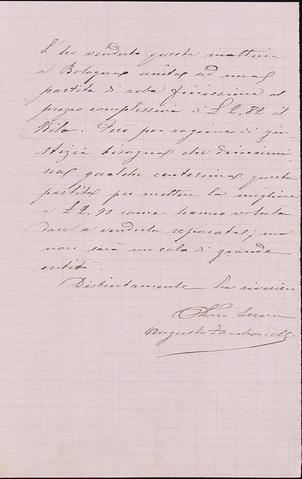 L'ho venduta questa mattina
a Bologna unita ad una
partita di roba finissima al
prezzo complessivo di £ 2,82 il
Kilo. Però per ragione di giu
stizia bisogna che diminui
sca qualche centesimo questa
partita per mettere la migliore
a £ 2.90 come hanno voluto
dare a venderla separata, ma
non sarà una cosa di grande
entità.
Distintamente La riverisco
Suo Servo
Augusto Zamboni